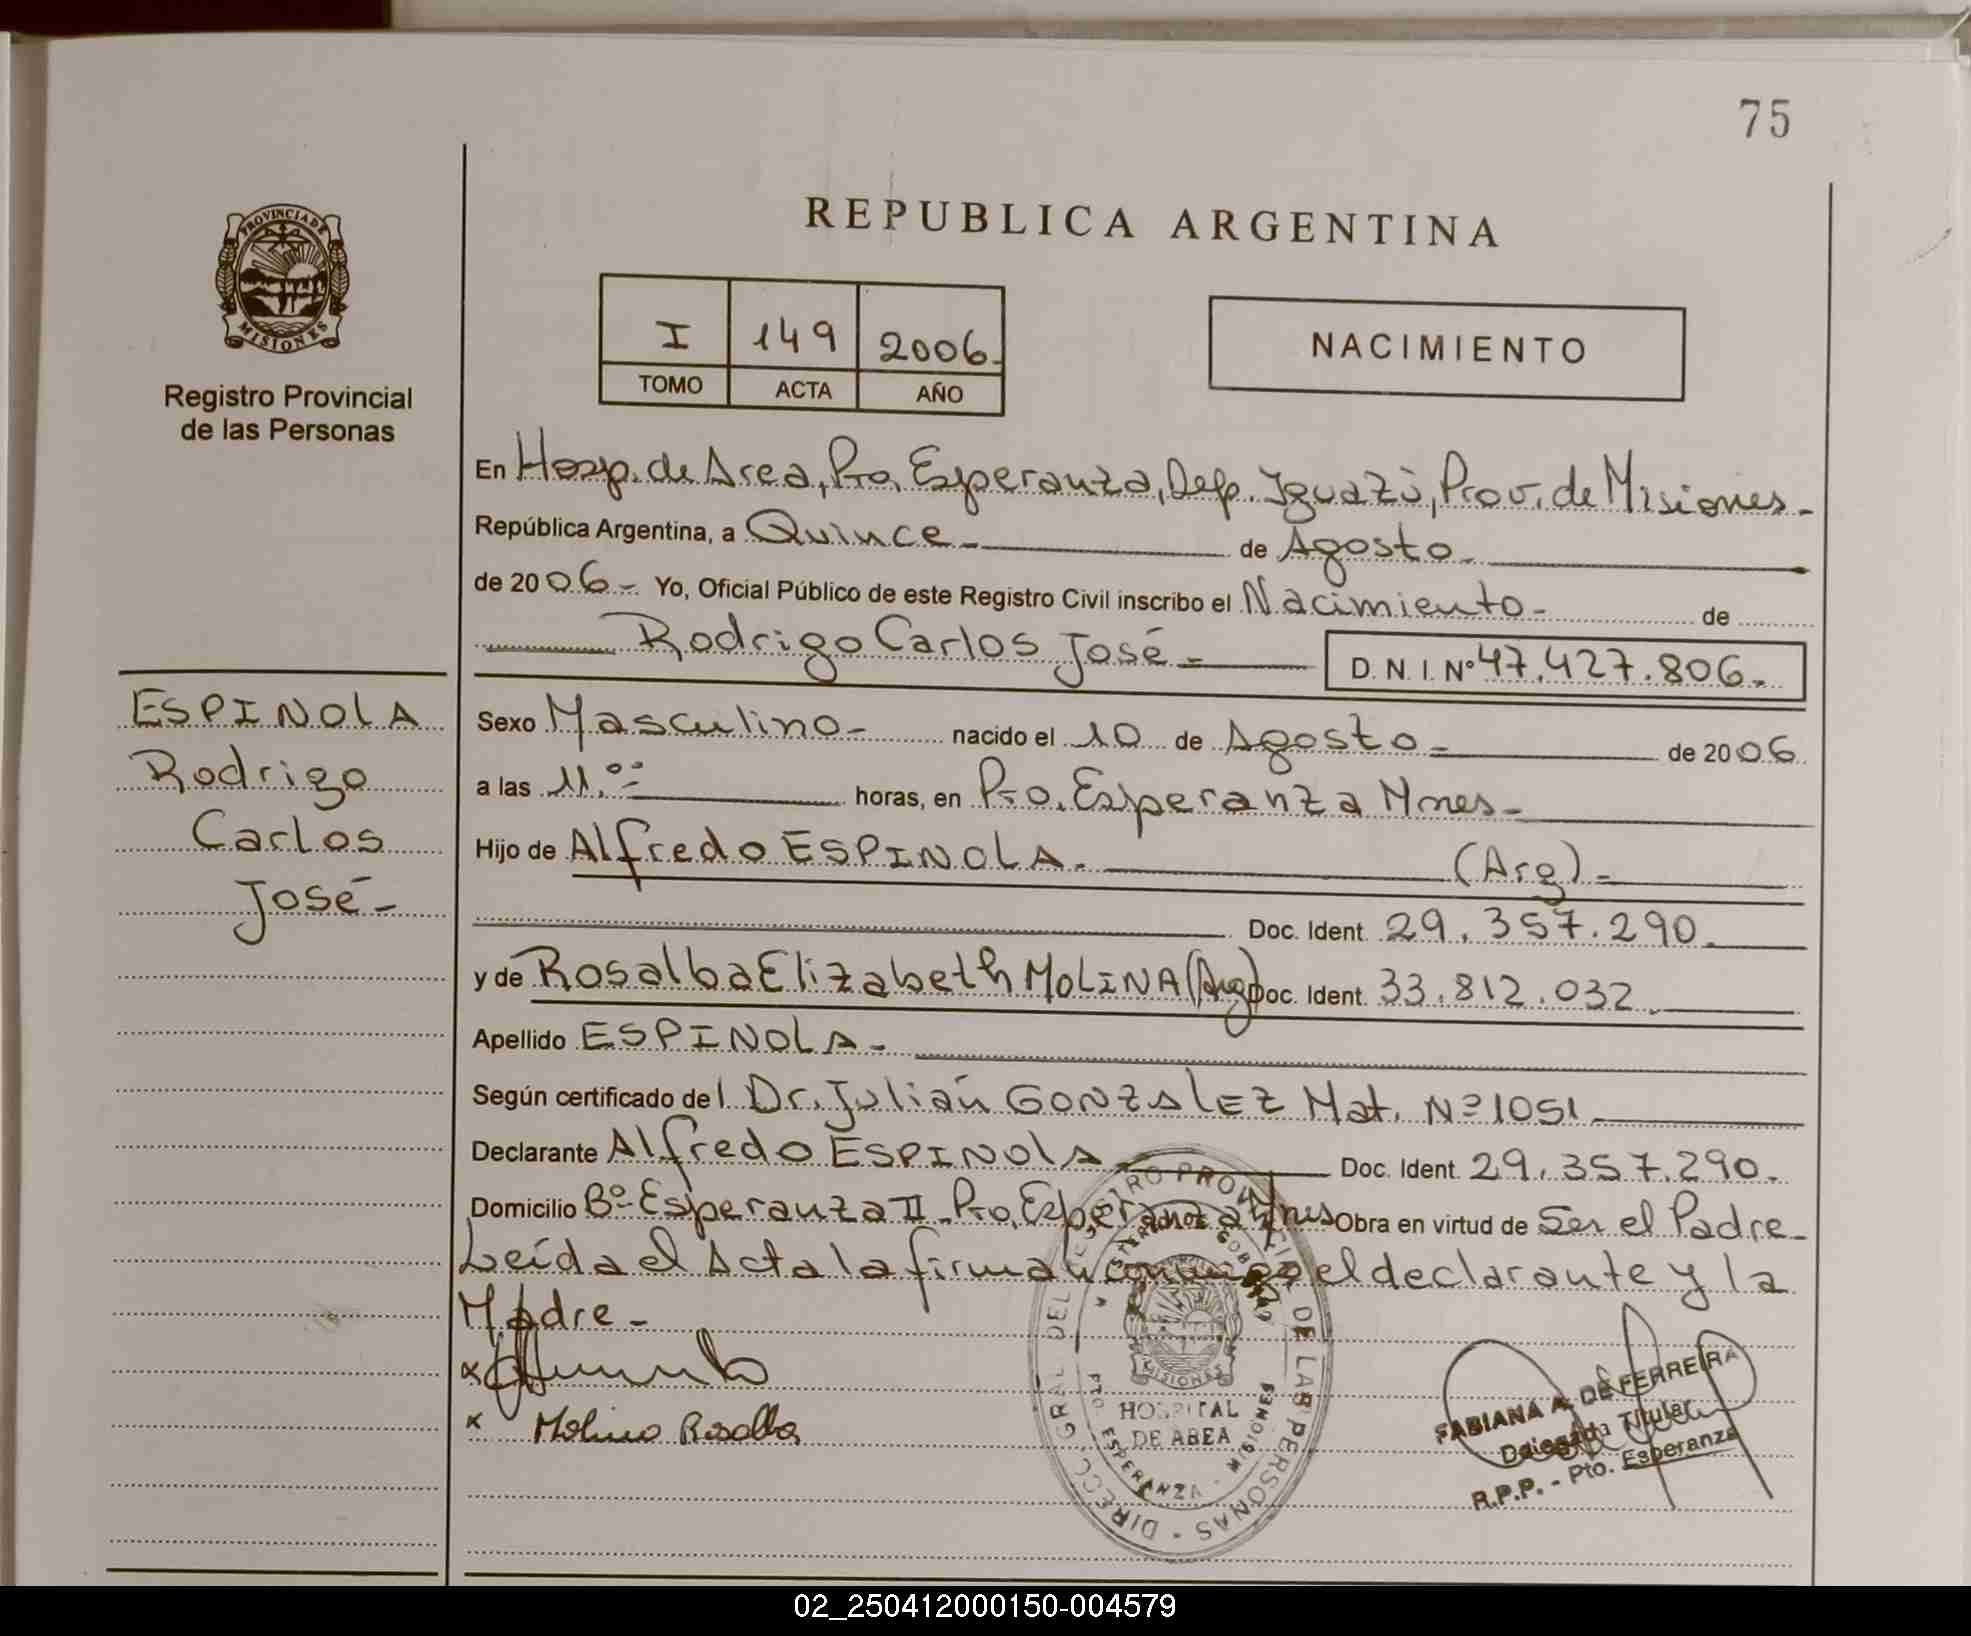 75
REPUBLICA ARGENTINA
PROVINCIA DE
MISIONES
Registro Provincial
de las Personas
I 149 2006.
TOMO ACTA AÑO
NACIMIENTO
En Hosp. de Area, Pto. Esperanza, Dep. Iguazú, Prov. de Misiones-
República Argentina, a Quince- de Agosto-
de 2006- Yo, Oficial Público de este Registro Civil inscribo el Nacimiento- de
Rodrigo Carlos José- D. N. I. Nº 47.427.806-
ESPINOLA
Rodrigo
Carlos
José-
Sexo Masculino- nacido el 10 de Agosto- de 2006
a las 11.°° horas, en Pto. Esperanza Mnes-
Hijo de Alfredo ESPINOLA- (Arg)-
Doc. Ident. 29.357.290-
y de Rosalba Elizabeth MOLINA (Arg) Doc. Ident. 33.812.032-
Apellido ESPINOLA-
Según certificado del Dr. Julián GONZALEZ Mat. Nº 1051-
Declarante Alfredo ESPINOLA- Doc. Ident. 29.357.290-
Domicilio Bº Esperanza II Pto. Esperanza Mnes Obra en virtud de Ser el Padre-
Leída el Acta la firman conmigo el declarante y la
Madre-
x
x Molina Rosalba
DIRECC. GRAL DEL REGISTRO PROVINCIAL DE LAS PERSONAS
MINISTERIO DE GOBIERNO
MISIONES
HOSPITAL
DE AREA
PTO. ESPERANZA - MISIONES
FABIANA A. DE FERREIRA
Delegada Titular
R.P.P. - Pto. Esperanza
02_250412000150-004579